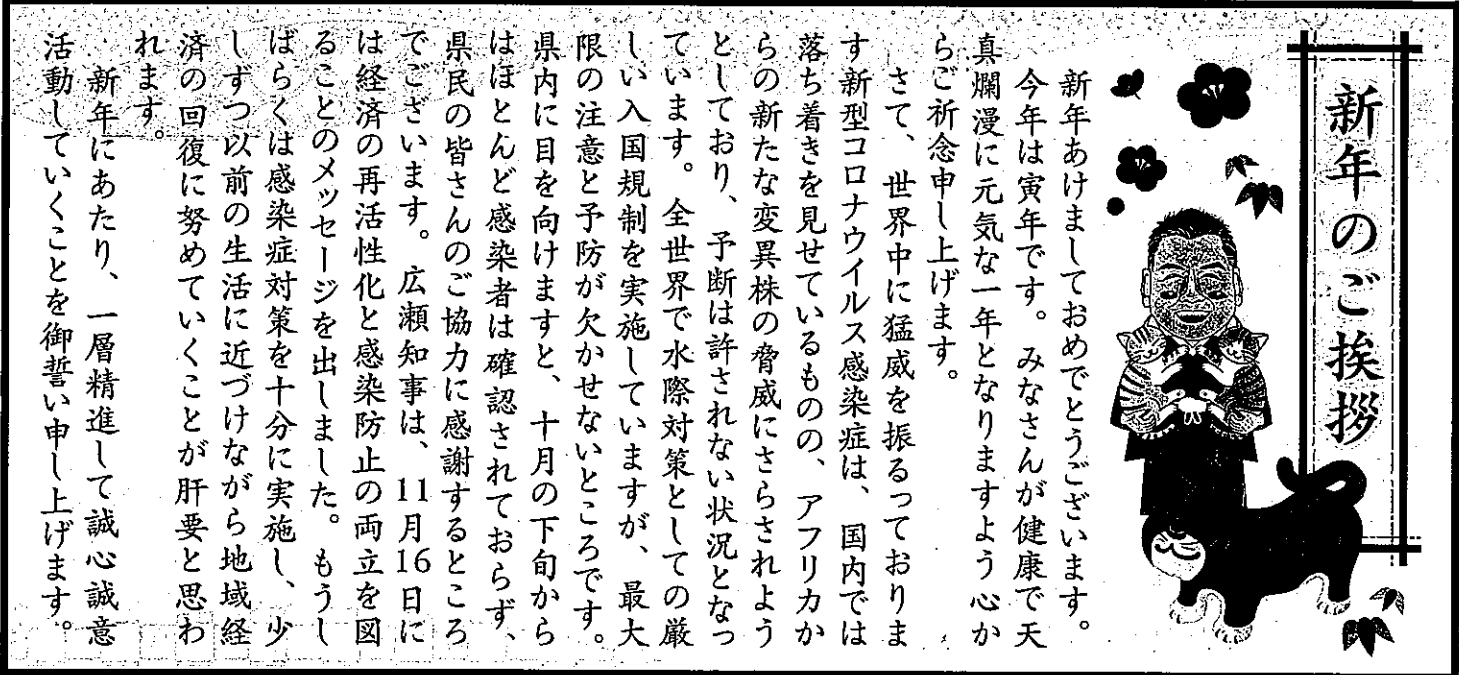 新年のご挨拶
新年あけましておめでとうございます。
今年は寅年です。みなさんが健康で天
真爛漫に元気な一年となりますよう心か
らご祈念申し上げます。
さて、世界中に猛威を振るっておりま
す新型コロナウイルス感染症は、国内では
落ち着きを見せているものの、アフリカか
らの新たな変異株の脅威にさらされよう
としており、予断は許されない状況となっ
ています。全世界で水際対策としての厳
しい入国規制を実施していますが、最大
限の注意と予防が欠かせないところです。
県内に目を向けますと、十月の下旬から
はほとんど感染者は確認されておらず、
県民の皆さんのご協力に感謝するところ
でございます。広瀬知事は、11月16日に
は経済の再活性化と感染防止の両立を図
ることのメッセージを出しました。もうし
ばらくは感染症対策を十分に実施し、少
しずつ以前の生活に近づけながら地域経
済の回復に努めていくことが肝要と思わ
れます。
新年にあたり、一層精進して誠心誠意
活動していくことを御誓い申し上げます。